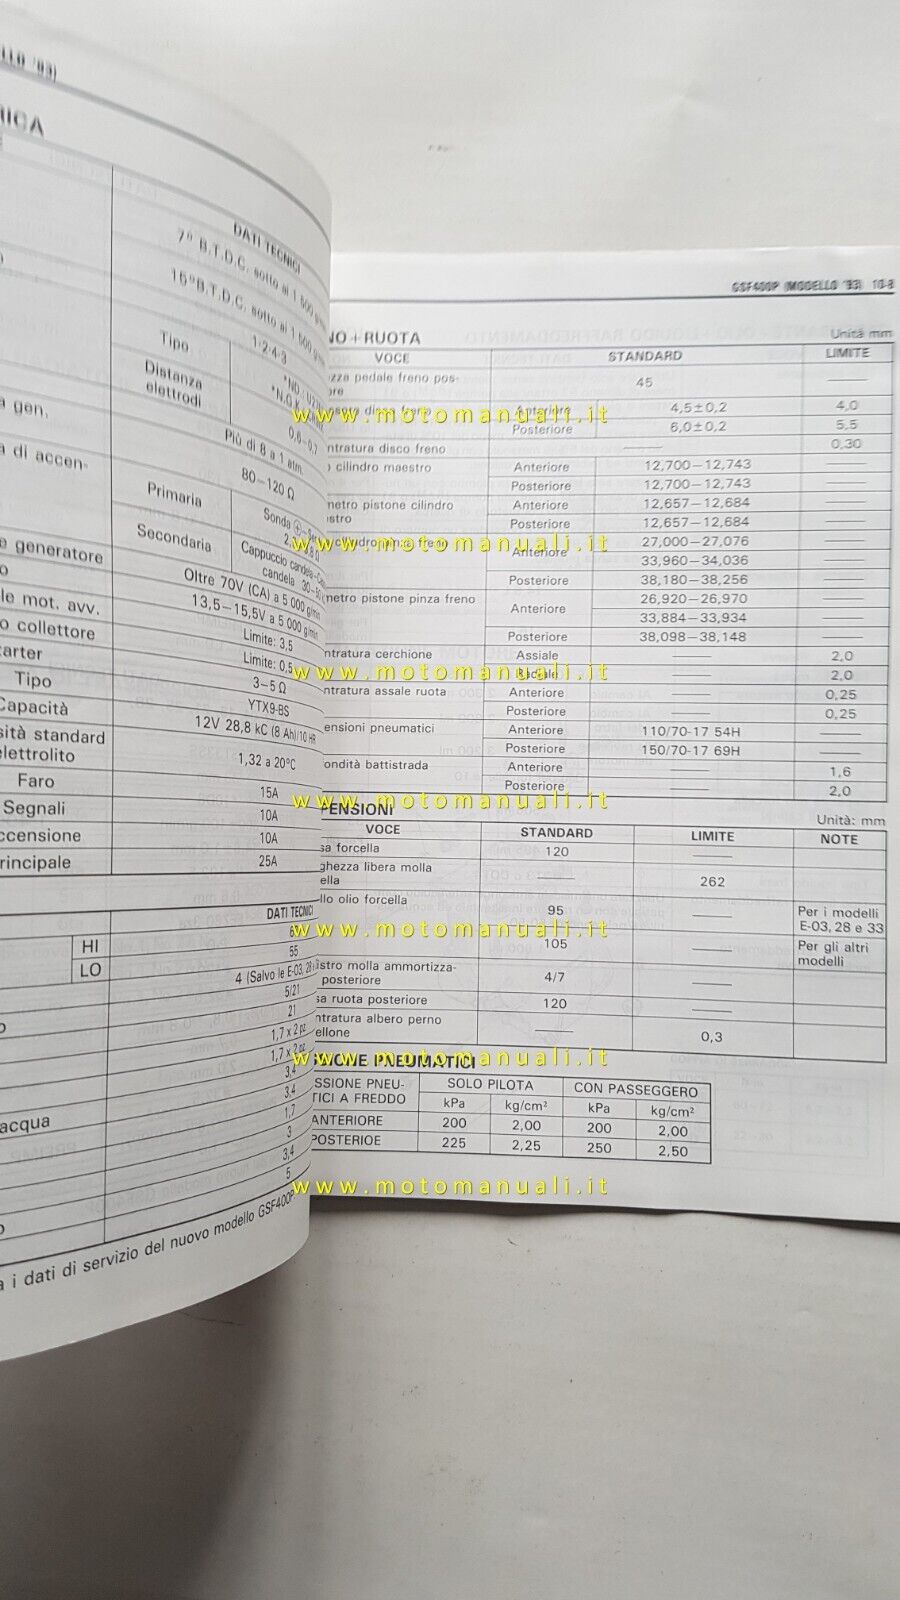 RICA
DATI TECNICI
7° B.T.D.C. sotto ai 1 500
15° B.T.D.C. sotto ai 1 500
1·2·4·3
Tipo
Distanza
elettrodi
0,6–0,7
a gen.
Più di 8 a 1 atm.
a di accen-
80–120 Ω
Primaria
Sonda
Secondaria
Cappuccio candela
candela
e generatore
Oltre 70V (CA) a 5 000 g/min
le mot. avv.
13,5–15,5V a 5 000 g/min
o collettore
Limite: 3,5
Limite: 0,5
Tipo
3–5 Ω
Capacità
YTX9-BS
12V 28,8 kC (8 Ah)/10 HR
sità standard
elettrolito
1,32 a 20°C
Faro
15A
Segnali
10A
ccensione
10A
rincipale
25A
DATI TECNICI
HI
LO
55
4 (Salvo le E-03, 28
5/21
21
1,7 x 2 pz
1,7 x 2 pz
3,4
acqua
3,4
1,7
3
3,4
5
a i dati di servizio del nuovo modello GSF400P.
GSF400P (MODELLO '93) 10-8
NO + RUOTA
Unità mm
VOCE STANDARD LIMITE
zza pedale freno pos-
ore 45
disco freno Anteriore 4,5 ± 0,2 4,0
Posteriore 6,0 ± 0,2 5,5
ntratura disco freno 0,30
o cilindro maestro Anteriore 12,700–12,743
Posteriore 12,700–12,743
metro pistone cilindro Anteriore 12,657–12,684
stro Posteriore 12,657–12,684
freno Anteriore 27,000–27,076
33,960–34,036
Posteriore 38,180–38,256
metro pistone pinza freno Anteriore 26,920–26,970
33,884–33,934
Posteriore 38,098–38,148
ntratura cerchione Assiale 2,0
Radiale 2,0
ntratura assale ruota Anteriore 0,25
Posteriore 0,25
ensioni pneumatici Anteriore 110/70-17 54H
Posteriore 150/70-17 69H
ondità battistrada Anteriore 1,6
Posteriore 2,0
PENSIONI
Unità: mm
VOCE STANDARD LIMITE NOTE
sa forcella 120
ghezza libera molla
ella 262
llo olio forcella 95 Per i modelli
E-03, 28 e 33
105 Per gli altri
modelli
istro molla ammortizza-
posteriore 4/7
sa ruota posteriore 120
ntratura albero perno
ellone 0,3
SSIONE PNEUMATICI
SSIONE PNEU-
TICI A FREDDO SOLO PILOTA CON PASSEGGERO
kPa kg/cm² kPa kg/cm²
ANTERIORE 200 2,00 200 2,00
POSTERIOE 225 2,25 250 2,50
www.motomanuali.it
www.motomanuali.it
www.motomanuali.it
www.motomanuali.it
www.motomanuali.it
www.motomanuali.it
www.motomanuali.it